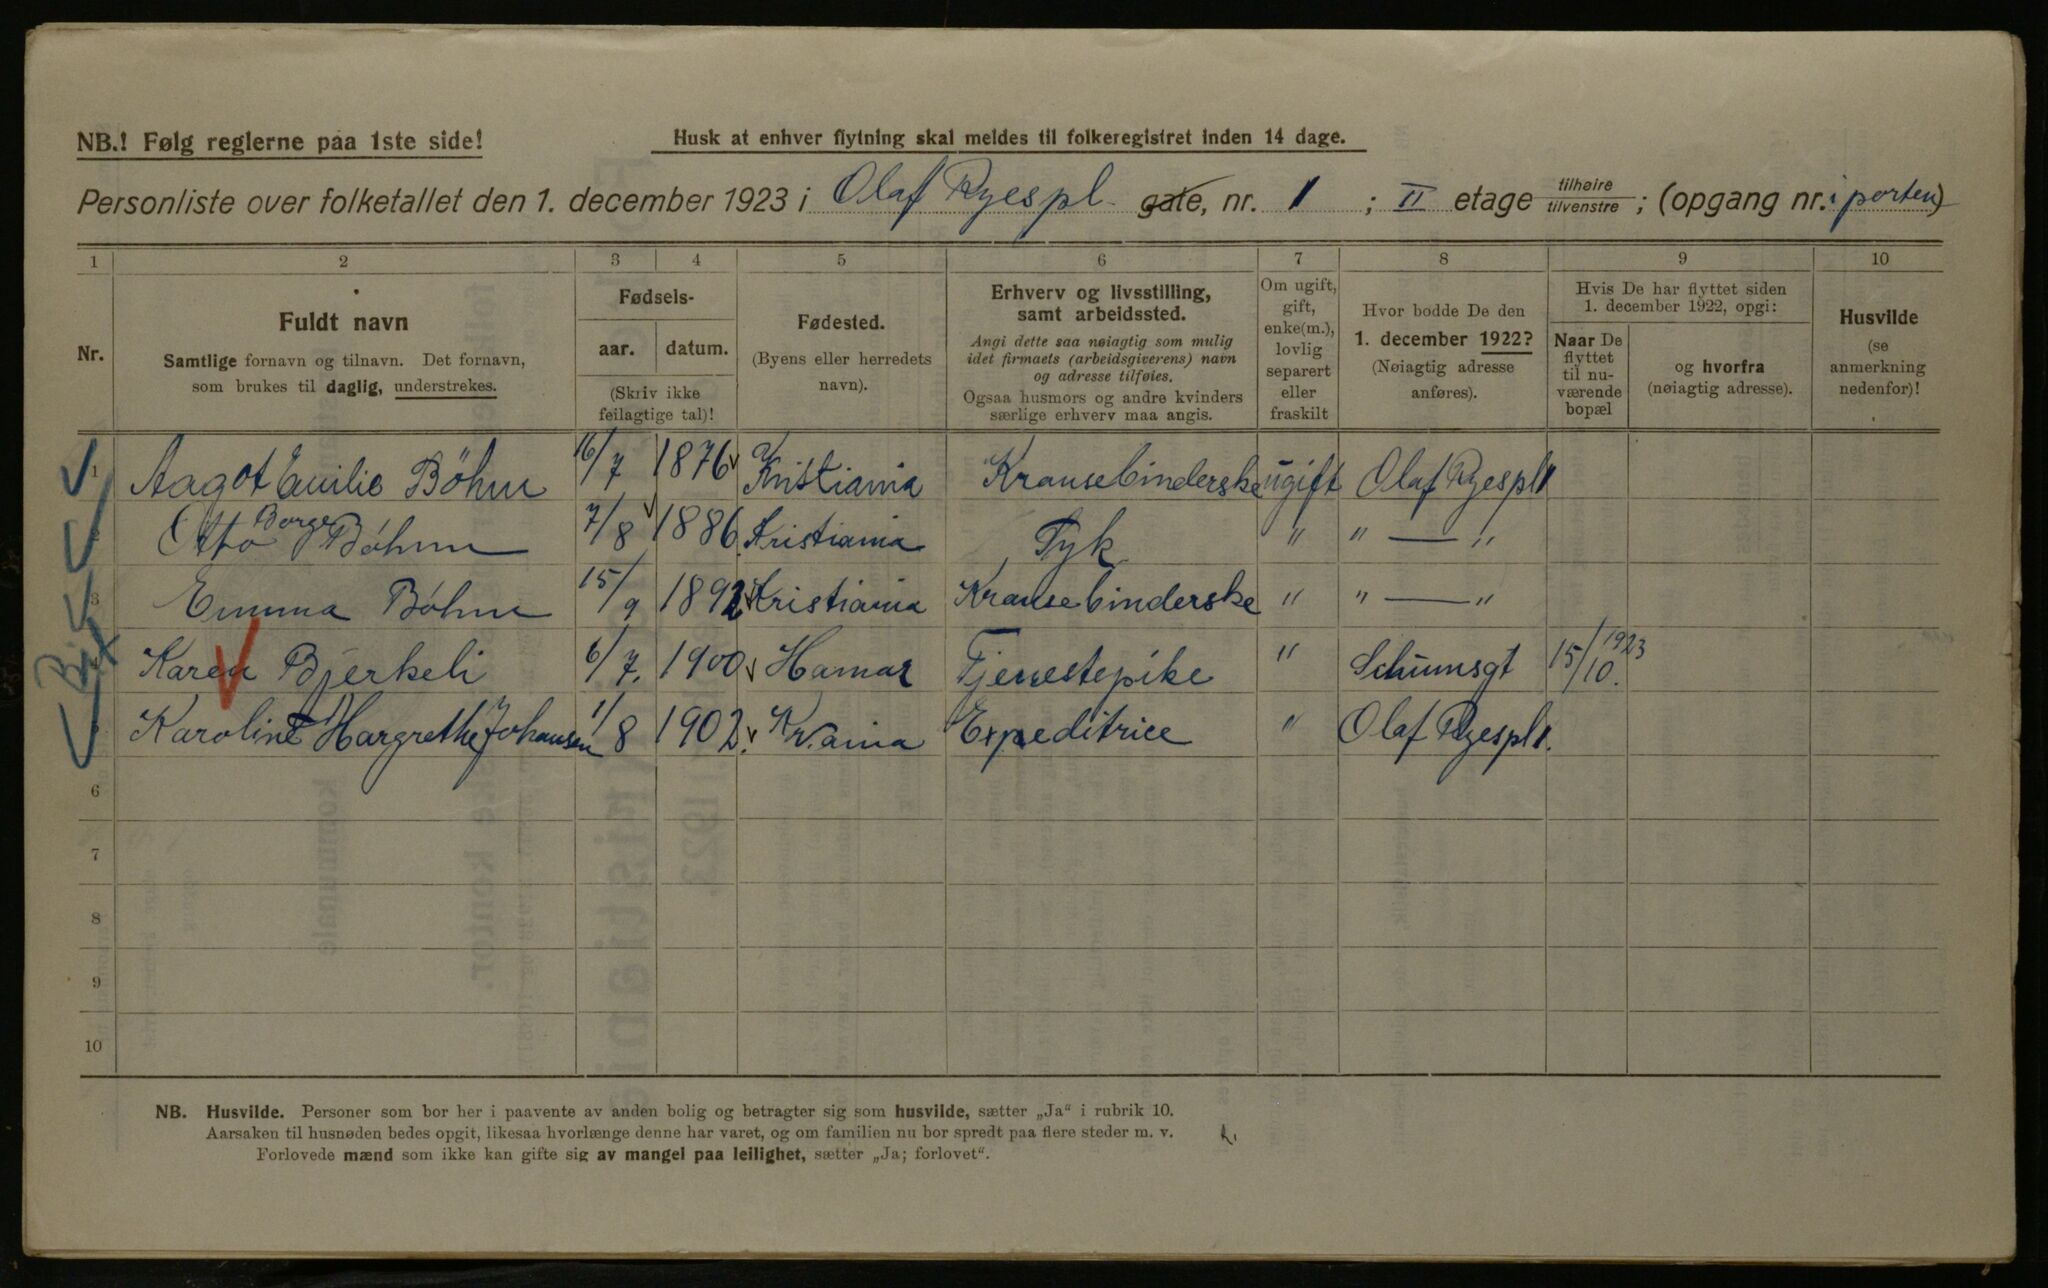 NB.! Følg reglerne paa 1ste side!
Husk at enhver flytning skal meldes til folkeregistret inden 14 dage.
Personliste over folketallet den 1. december 1923 i Olaf Ryespl. gate, nr. 1 ; II etage tilhøire tilvenstre ; (opgang nr. i porten)
1 2 3 4 5 6 7 8 9 10
Nr.
Fuldt navn
Samtlige fornavn og tilnavn. Det fornavn,
som brukes til daglig, understrekes.
Fødsels-
aar. datum.
(Skriv ikke
feilagtige tal)!
Fødested.
(Byens eller herredets
navn).
Erhverv og livsstilling,
samt arbeidssted.
Angi dette saa nøiagtig som mulig
idet firmaets (arbeidsgiverens) navn
og adresse tilføies.
Ogsaa husmors og andre kvinders
særlige erhverv maa angis.
Om ugift,
gift,
enke(m.),
lovlig
separert
eller
fraskilt
Hvor bodde De den
1. december 1922?
(Nøiagtig adresse
anføres).
Hvis De har flyttet siden
1. december 1922, opgi:
Naar De
flyttet
til nu-
værende
bopæl
og hvorfra
(nøiagtig adresse).
Husvilde
(se
anmerkning
nedenfor)!
1 Aagot Emilie Böhm 16/7 1876 Kristiania Kransebinderske ugift Olaf Ryespl 1
Otto Borge Böhm 7/8 1886 Kristiania Tyk " " — "
3 Emma Böhm 15/9 1892 Kristiania Kransebinderske " " — "
Karen Bjerkeli 6/7. 1900 Hamar Tjenestepike " Schumsgt 15/10. 1923
Karoline Margrethe Johansen 1/8 1902. Kr.ania Expeditrice " Olaf Ryespl 1.
6
7
8
9
10
NB. Husvilde. Personer som bor her i paavente av anden bolig og betragter sig som husvilde, sætter „Ja“ i rubrik 10.
Aarsaken til husnøden bedes opgit, likesaa hvorlænge denne har varet, og om familien nu bor spredt paa flere steder m. v.
Forlovede mænd som ikke kan gifte sig av mangel paa leilighet, sætter „Ja; forlovet“.